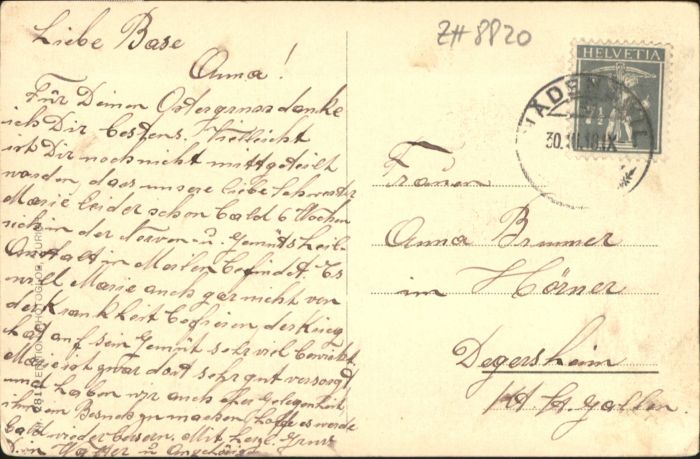 Liebe Base
Anna!
Für Deinen Ostergruss danke
ich Dir bestens. Vielleicht
ist Dir noch nicht mittgeteilt
worden, dass unsere liebe Schwester
Marie leider schon bald 6 Wochen
sich in der Nerven u. Gemütsheil
Anstalt in Meilen befindet. Es
will Marie auch gar nicht von
der Krankheit der Krieg
hat auf sein Gemüt sehr viel bewirkt.
Marie ist zwar dort sehr gut versorgt
und haben wir auch eher Gelegenheit
ihr ein Besuch zu machen, hoffe es werde
bald wieder bessern. Mit herzl. Gruss
Dein Vetter u. Angehörige
ZH 8820
HELVETIA
30.III.18.IX
Frauen
Anna Brunner
im Hörner
Degersheim
Kt St. Gallen.